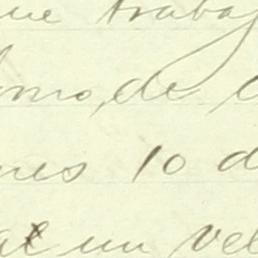 ue trabaj
omo, de
nes 10 d
al un vel